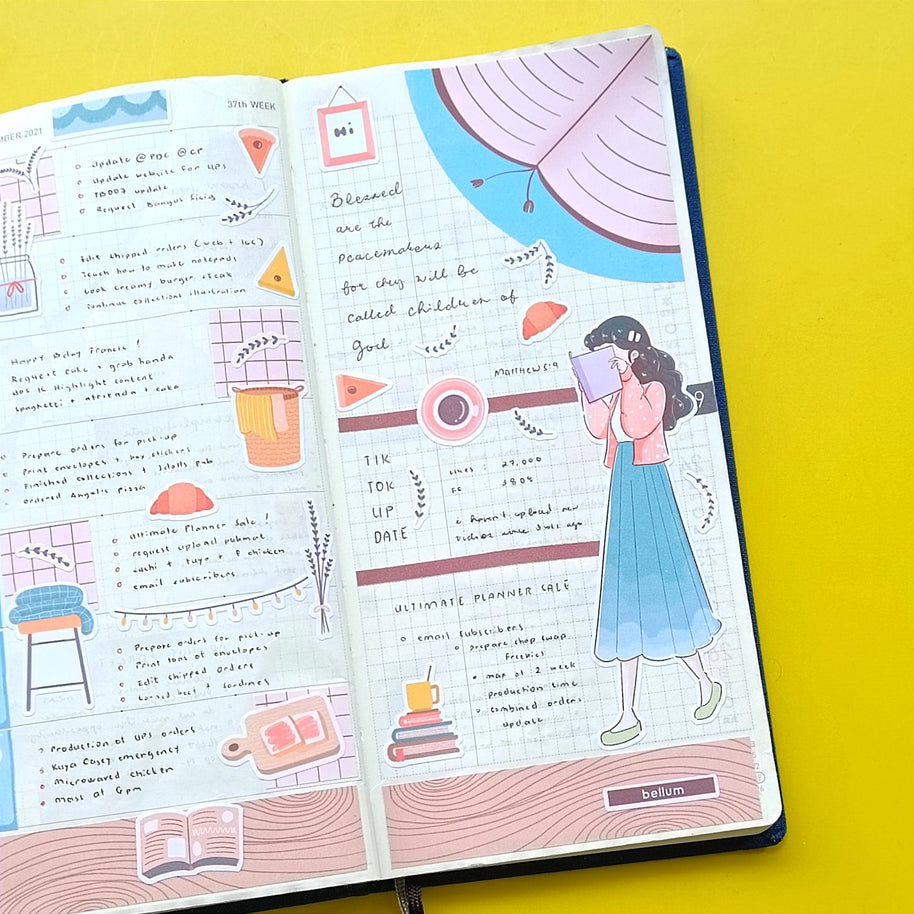 MBER 2021
37th WEEK
update @PDC @CP
update website for UPS
TB007 update
Request Bangus Sisig
Edit shipped orders (web + IGC)
Teach how to make notepads
Cook creamy burger steak
Continue collections illustration
Happy Bday Francis!
Request cake + grab handa
Highlight content
spaghetti + afritada + cake
Prepare orders for pick-up
Print envelopes + box stickers
Finished collections + Jdolls pub
ordered Angel's Pizza
ultimate Planner Sale!
request upload pubmat
sushi + tuyo + f chicken
email subscribers
Prepare orders for pick-up
Print tons of envelopes
Edit shipped orders
corned beef + sardines
Production of UPS orders
Kuya Casey emergency
microwaved chicken
mass at 6pm
Hi
Blessed
are the
peacemakers
for they will be
called children of
God
Matthew 5:9
9
TIK
TOK
UP
DATE
Likes : 27,000
: 3804
haven't upload new
videos since 3 wks ago
ULTIMATE PLANNER SALE
email subscribers
prepare shop swap
Freebies
map at 2 week
production time
combined orders
update
bellum